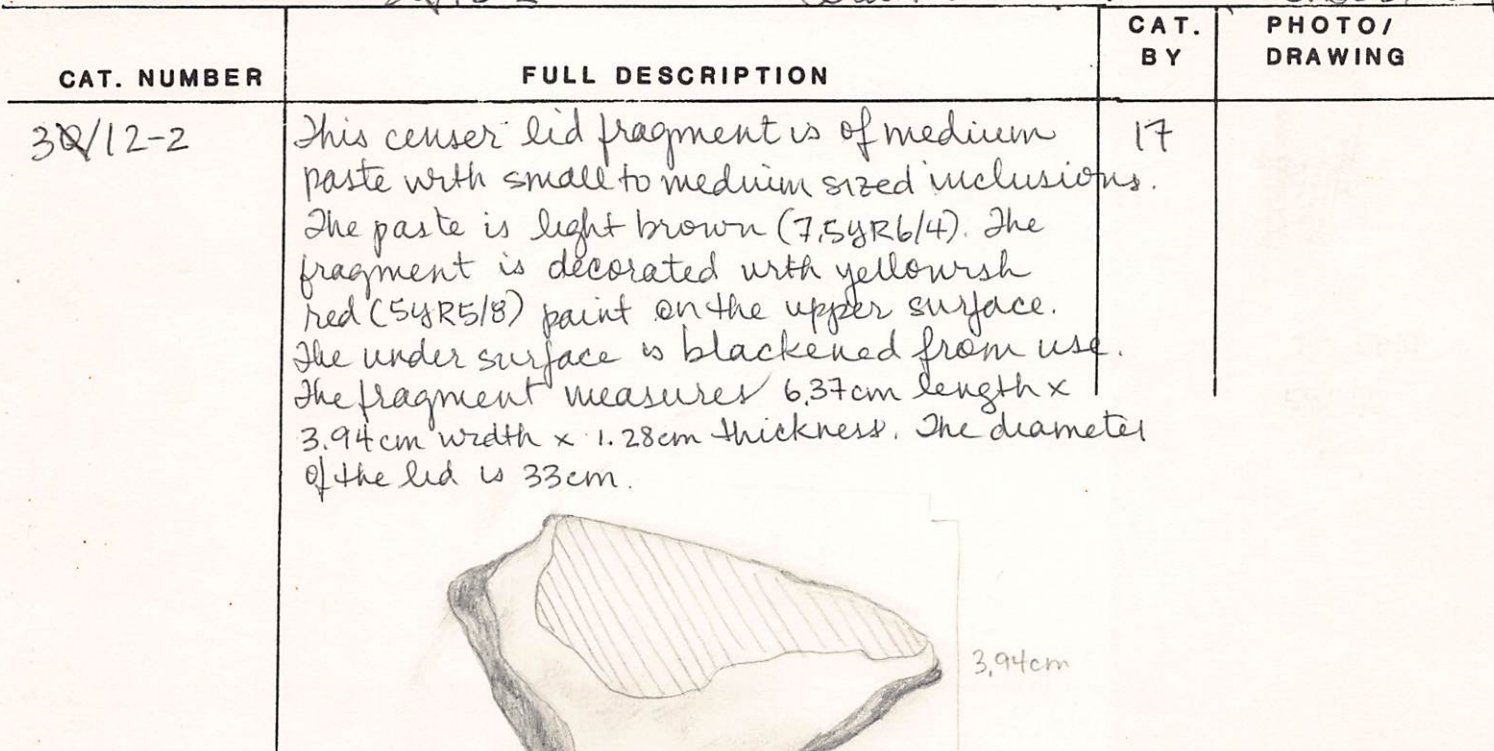 CAT. NUMBER
FULL DESCRIPTION
CAT. BY
PHOTO/ DRAWING
/12-2
This censer lid fragment is of medium
paste with small to medium sized inclusions.
The paste is light brown (7.5YR6/4). The
fragment is decorated with yellowish
red (5YR5/8) paint on the upper surface.
The under surface is blackened from use.
The fragment measures 6.37cm length x
3.94cm width x 1.28cm thickness. The diameter
of the lid is 33cm.
17
3.94cm